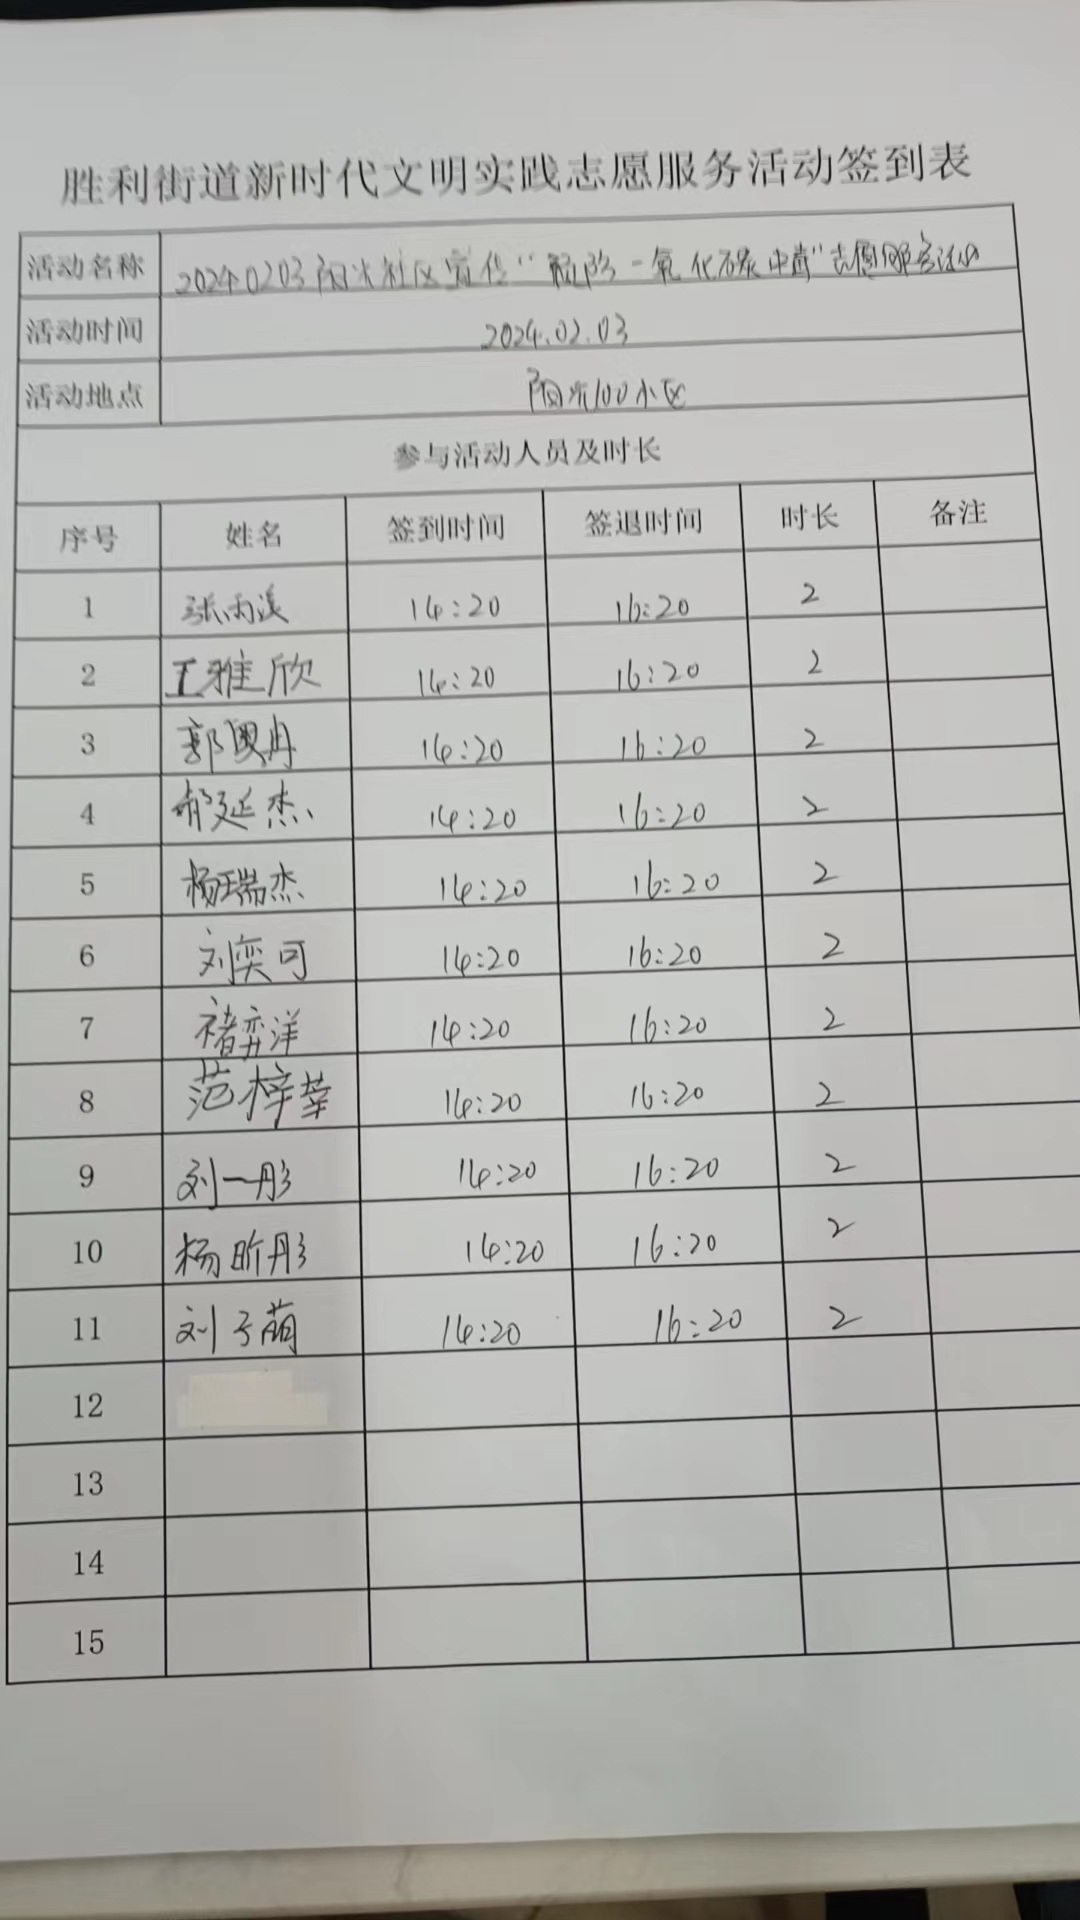 胜利街道新时代文明实践志愿服务活动签到表
活动名称 20240203阳光社区宣传“预防一氧化碳中毒”志愿服务活动
活动时间 2024.02.03
活动地点 阳光100小区
参与活动人员及时长
序号 姓名 签到时间 签退时间 时长 备注
1 张雨溪 14:20 16:20 2
2 王雅欣 14:20 16:20 2
3 郭奥冉 14:20 16:20 2
4 郝延杰 14:20 16:20 2
5 杨瑞杰 14:20 16:20 2
6 刘奕可 14:20 16:20 2
7 褚弈洋 14:20 16:20 2
8 范梓莘 14:20 16:20 2
9 刘一彤 14:20 16:20 2
10 杨昕彤 14:20 16:20 2
11 刘子萌 14:20 16:20 2
12
13
14
15